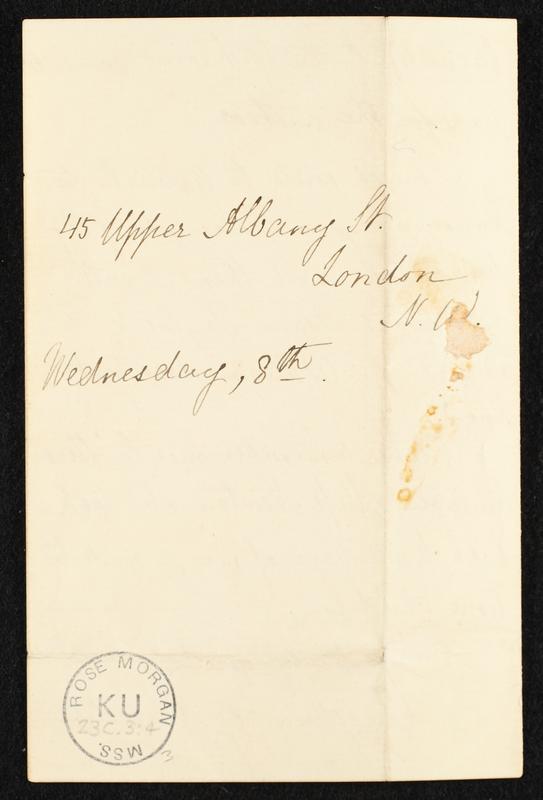 45 Upper Albany St.
London
N. W.
Wednesday, 8th.
ROSE MORGAN
KU
23C.3:4
MSS.
3